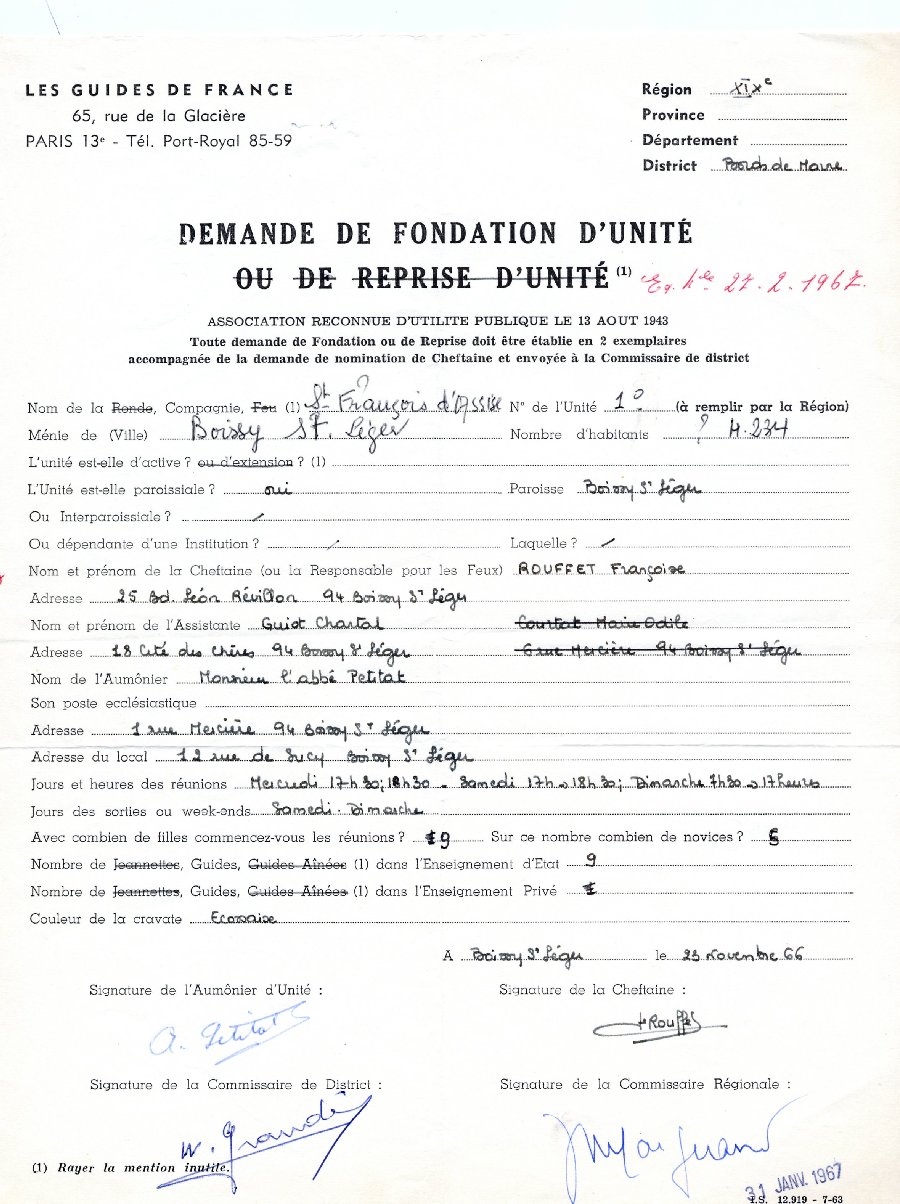 LES GUIDES DE FRANCE
65, rue de la Glacière
PARIS 13e - Tél. Port-Royal 85-59
Région XIXe
Province
Département
District Bords de Marne
DEMANDE DE FONDATION D'UNITÉ
OU DE REPRISE D'UNITÉ (1) 27.2.1967.
ASSOCIATION RECONNUE D'UTILITE PUBLIQUE LE 13 AOUT 1943
Toute demande de Fondation ou de Reprise doit être établie en 2 exemplaires
accompagnée de la demande de nomination de Cheftaine et envoyée à la Commissaire de district
Nom de la Ronde, Compagnie, Feu (1) St François d'ASSISE N° de l'Unité 1° (à remplir par la Région)
Ménie de (Ville) Boissy St. Léger Nombre d'habitants ? 4.234
L'unité est-elle d'active ? ou d'extension ? (1)
L'Unité est-elle paroissiale ? oui Paroisse Boissy St Léger
Ou Interparoissiale ? /
Ou dépendante d'une Institution ? / Laquelle ? /
Nom et prénom de la Cheftaine (ou la Responsable pour les Feux) ROUFFET Françoise
Adresse 25 Bd. Léon Révillon 94 Boissy St Léger
Nom et prénom de l'Assistante Guiot Chantal Courtat Marie Odile
Adresse 18 Cité des Chênes 94 Boissy St Léger 6 rue Mercière 94 Boissy St Léger
Nom de l'Aumônier Monsieur l'abbé Petitat
Son poste ecclésiastique
Adresse 1 rue Mercière 94 Boissy St Léger
Adresse du local 12 rue de Sucy Boissy St Léger
Jours et heures des réunions Mercredi 17h30; 18h30 - Samedi 17h → 18h30; Dimanche 7h30 → 17heures
Jours des sorties ou week-ends Samedi. Dimanche
Avec combien de filles commencez-vous les réunions ? 9 Sur ce nombre combien de novices ? 5
Nombre de Jeannettes, Guides, Guides Aînées (1) dans l'Enseignement d'Etat 9
Nombre de Jeannettes, Guides, Guides Aînées (1) dans l'Enseignement Privé
Couleur de la cravate Ecossaise
A Boissy St Léger le 23 novembre 66
Signature de l'Aumônier d'Unité :
Signature de la Cheftaine :
A. Petitat
Rouffet
Signature de la Commissaire de District :
Signature de la Commissaire Régionale :
(1) Rayer la mention inutile.
31 JANV. 1967
I.S. 12.919 - 7-63